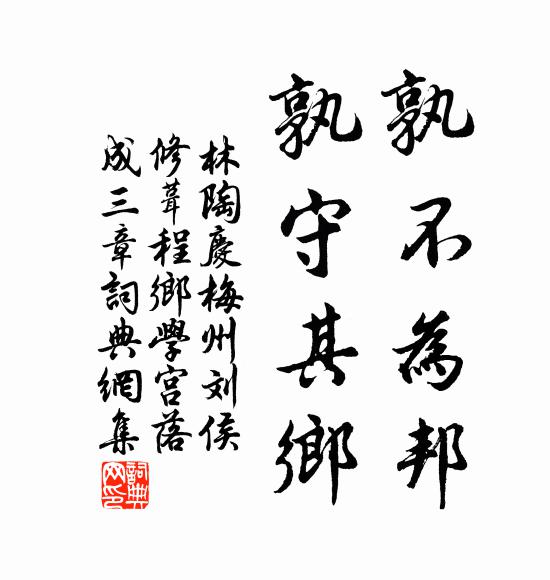 孰不為邦
孰守其鄉
林陶慶梅州刘侯
修葺程鄉學宮落
成三章詞典網集
詞典网印